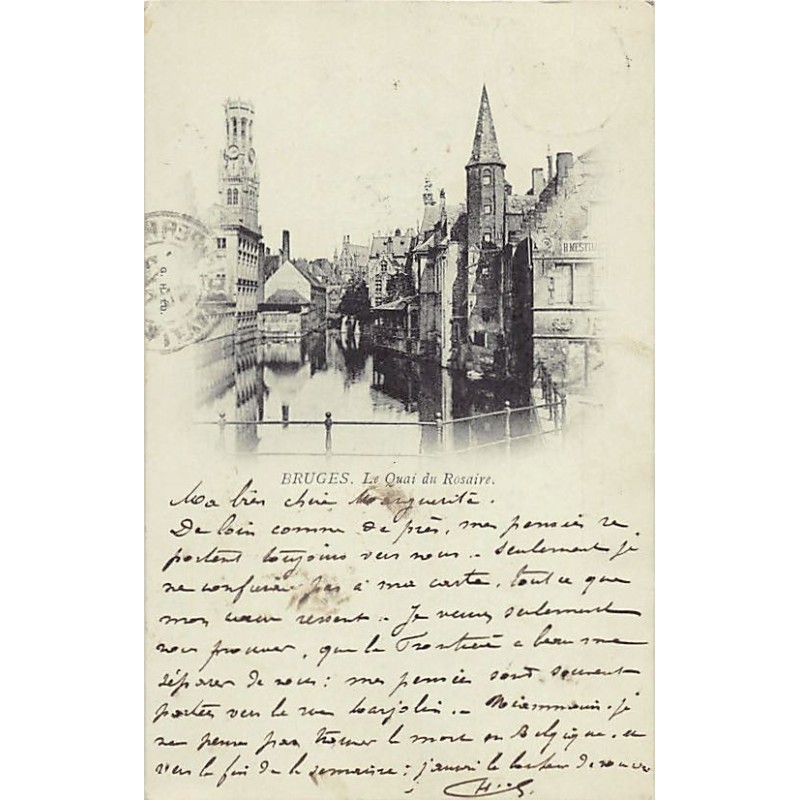 G. H. ÉD.
BRUGES. Le Quai du Rosaire.
Ma bien chère Marguerite.
De loin comme de près, mes pensées se
portent toujours vers vous. Seulement je
ne confierai pas à ma carte, tout ce que
mon cœur ressent. Je veux seulement
vous prouver, que la Frontière a beau me
séparer de vous : mes pensées sont souvent
portées vers la rue Marjolin. Néanmoins, je
ne pense pas trouver la mort en Belgique, et
vers la fin de la semaine : j'aurai le bonheur de